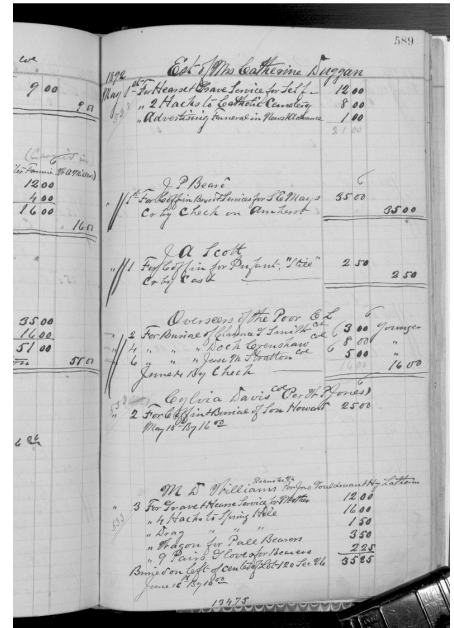 589
Est of Mrs Catherine Duggan
1892
May 1st For Hearse & Grave Service for Self 12 00
" 2 Hacks to Catholic Cemetery 8 00
" Advertising Funeral in News & Advance 1 00
21 00
J P Beard
1st For Coffin Box & Services for 35 00
Cr by Check on Amherst 35 00
J A Scott
" 1 For Coffin for Infant 2 50
Cr by Cash 2 50
Overseers of the Poor
" 2 For Burial of Smith col 3 00 Younger
" 4 " " " Dock Crenshaw col 8 00 "
" 6 " " " June Stratton col 5 00 "
June 4 By Check 16 00 16 00
Sylvia Davis col (Per Jones)
533
" 2 For Coffin & Burial of Son Howard 25 00
May 18th By 16 00
M D Williams
" 3 For Grave & Hearse Service for Mother 12 00
" 4 Hacks to Spring Hill 16 00
" Dray " " " 1 50
" Wagon for Pall Bearers 3 50
" 9 Pairs Gloves for Bearers 2 25
35 25
Buried on left of center of Lot 120 Sec
June
13475
9 00
9 00
12 00
4 00
16 00
16 00
35 00
16 00
51 00
51 00